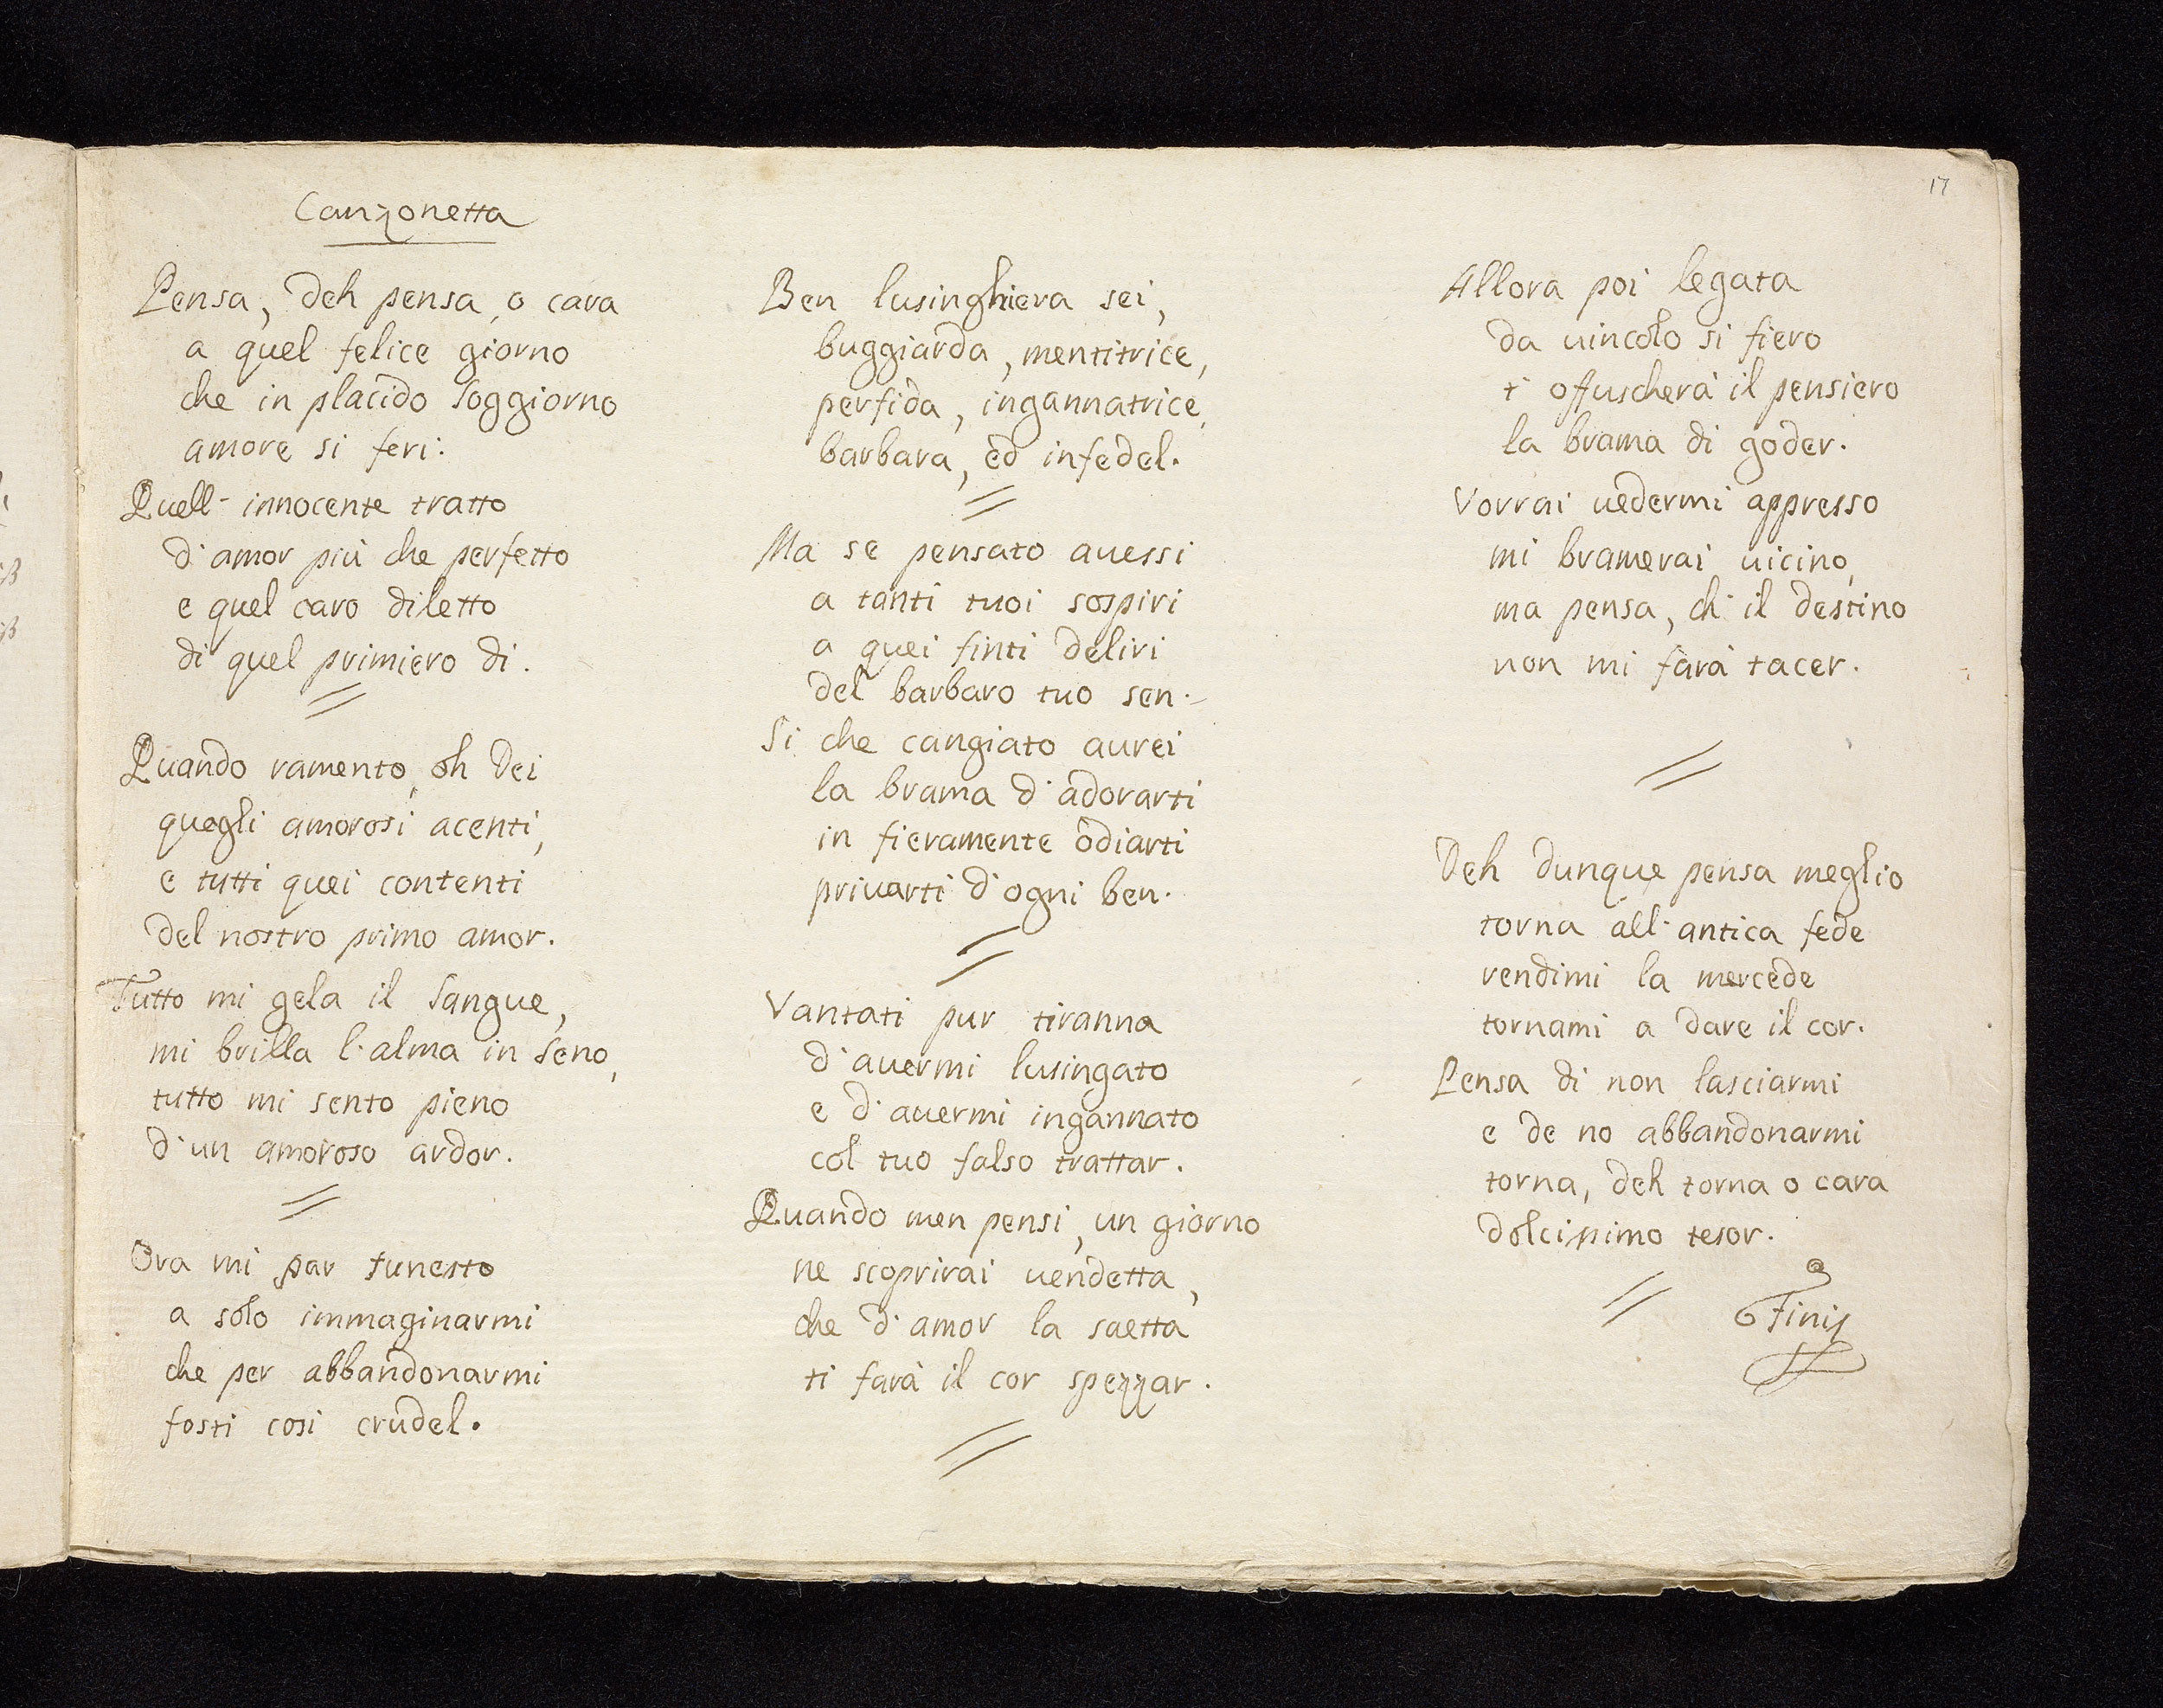 17
Canzonetta
Pensa, deh pensa, o cara
a quel felice giorno
che in placido soggiorno
amore si feri.
Quell' innocente tratto
d'amor più che perfetto
e quel caro diletto
di quel primiero di.
Quando ramento, oh Dei
quegli amorosi acenti,
e tutti quei contenti
del nostro primo amor.
Tutto mi gela il sangue,
mi brilla l'alma in seno,
tutto mi sento pieno
d'un amoroso ardor.
Ora mi par funesto
a solo immaginarmi
che per abbandonarmi
fosti cosi crudel.
Ben lusinghiera sei,
buggiarda, mentitrice,
perfida, ingannatrice,
barbara, ed infedel.
Ma se pensato auessi
a tanti tuoi sospiri
a quei finti deliri
del barbaro tuo sen.
Si che cangiato aurei
la brama d'adorarti
in fieramente odiarti
priuarti d'ogni ben.
Vantati pur tiranna
d'auermi lusingato
e d'auermi ingannato
col tuo falso trattar.
Quando men pensi, un giorno
ne scoprirai uendetta,
che d'amor la saetta
ti farà il cor spezzar.
Allora poi legata
da uincolo si fiero
t' offuscherà il pensiero
la brama di goder.
Vorrai uedermi appresso
mi bramerai uicino,
ma pensa, ch' il destino
non mi farà tacer.
Deh dunque pensa meglio
torna all' antica fede
rendimi la mercede
tornami a dare il cor.
Pensa di non lasciarmi
e de no abbandonarmi
torna, deh torna o cara
dolcissimo tesor.
Finis